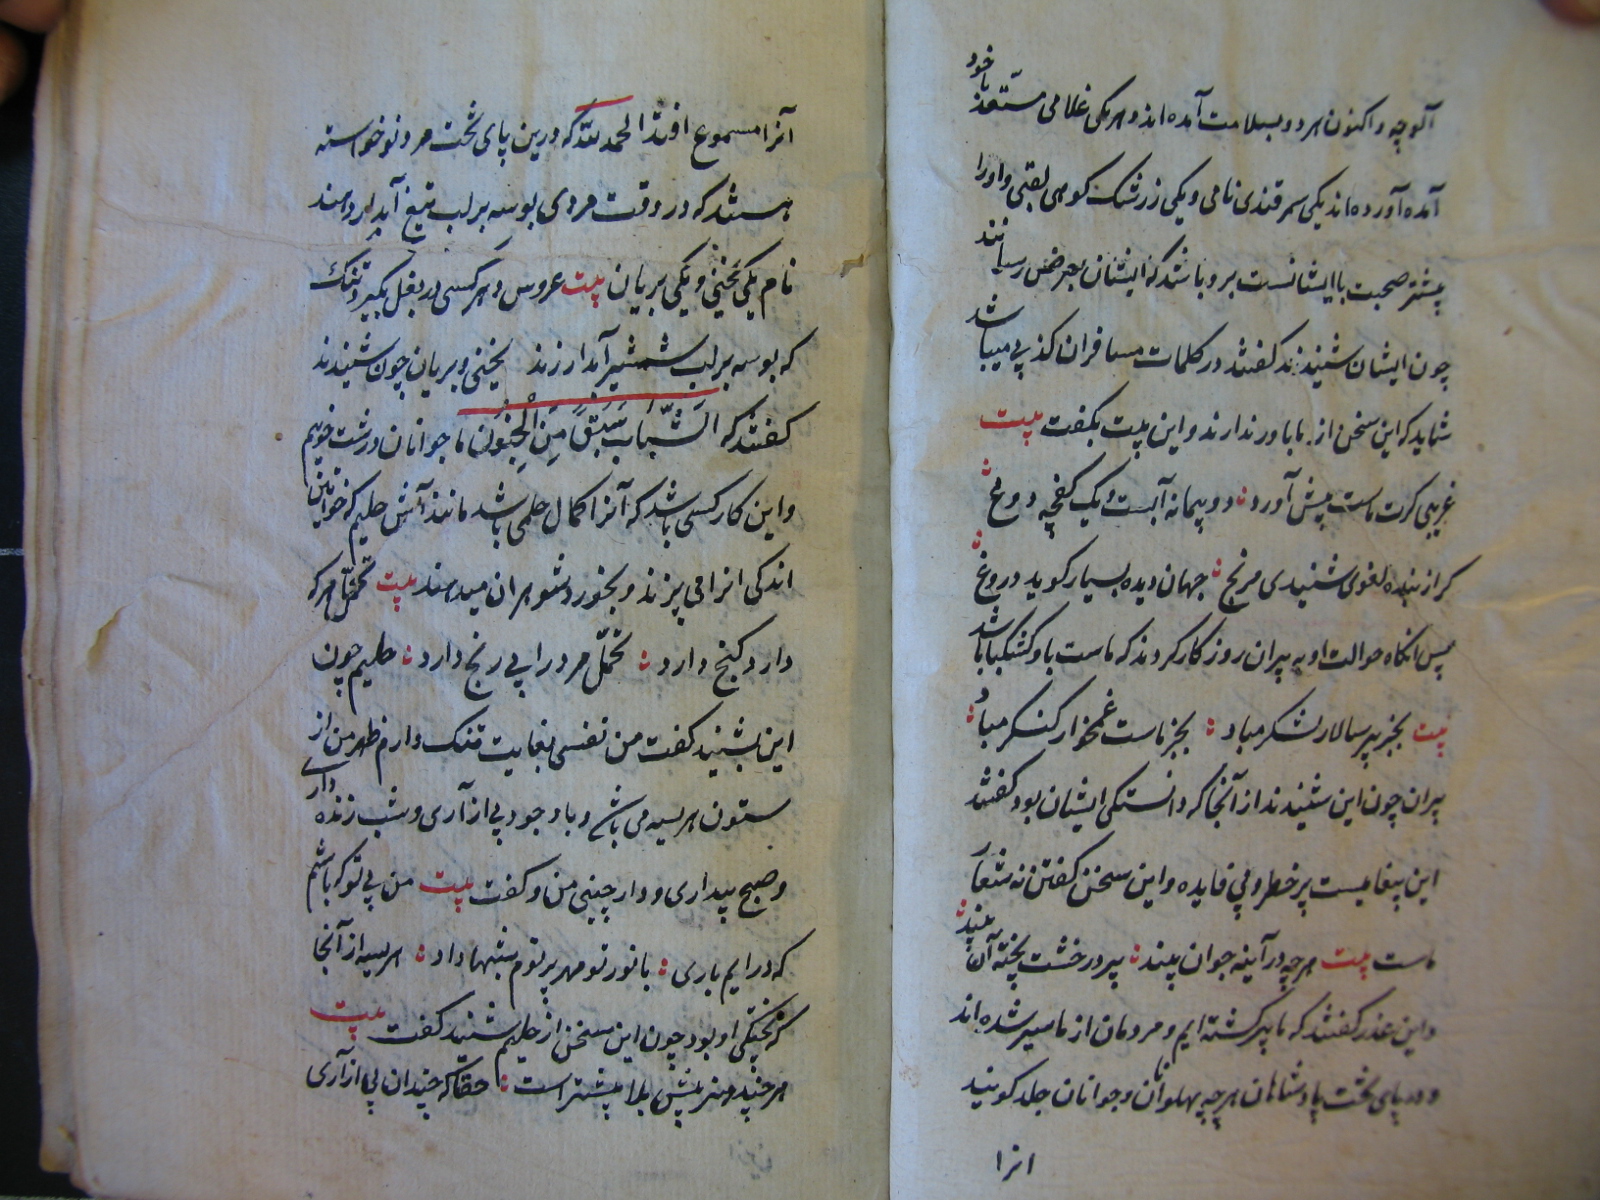 آلوچه و اکنون هر دو بسلامت آمده اند و هر یکی غلامی مستعد با خود
آمده آورده اند یکی سمرقندی نامی و یکی زرشک کوهی لقبی و او را
پیشتر صحبت با ایشانست برو باشد که ایشان بعرض رسانند
چون ایشان شنیدند گفتند در کلمات مسافران کذبی میباشد
شاید که این سخن از ما باور ندارند و این بیت بگفت بیت
غریبی کرت ماست پیش آورد دو پیمانه آبست و یک کفچه دوغ
گر از بنده لغوی شنیدی مرنج جهان دیده بسیار گوید دروغ
پس انگاه حوالت او به پیران روزکار کردند که ماست با و کشکبا باشد
بیت بجز پیر سالار لشکر مباد بجز ماست غمخوار کنگر مباد
پیران چون این شنیدند از آنجا که دانستگی ایشان بود گفتند
این پیغامیست پر خطر و بی فایده و این سخن گفتن نه شعار
ماست بیت هرچه در آینه جوان بیند پیر در خشت پخته آن بیند
و این عذر گفتند که ما پیر گشته ایم و مردمان از ما سیر شده اند
و در پای تخت پادشاهان هرچه پهلوانان و جوانان جلد گویند
انرا
آنرا مسموع افتد الحمد لله که درین پای تخت مرد نو خواسته
هستند که در وقت مردی بوسه بر لب تیغ آبدار دهند
نام یکی یخنی و یکی بریان بیت عروس دهر کسی در بغل بگیرد تنگ
که بوسه بر لب شمشیر آبدار زند یخنی و بریان چون شنیدند
گفتند که الشباب سبق من الجنون ما جوانان درشت خوییم
و این کار کسی باشد که آنرا کمال حلمی باشد مانند آش حلیم که خواتین
اندکی انرا می پزند و بخورد شوهران میدهند بیت تحمل هر که
دارد کنج دارد تحمل مرد را بی رنج دارد حلیم چون
این بشنید گفت من نفسی بغایت تنک دارم ظهر من از
ستون هریسه می باشد و با وجود بی از آری و شب زنده داری
و صبح بیداری و دار چینی من و گفت بیت من بی تو که باشم
که در ایم باری با نور تو مهر پرتوم شبها داد هریسه از آنجا
که پختگی او بود چون این سخن از حلیم شنید گفت بیت
هر چند هنر بیش بلا بیشتر است حقا که چندان بی ازآری